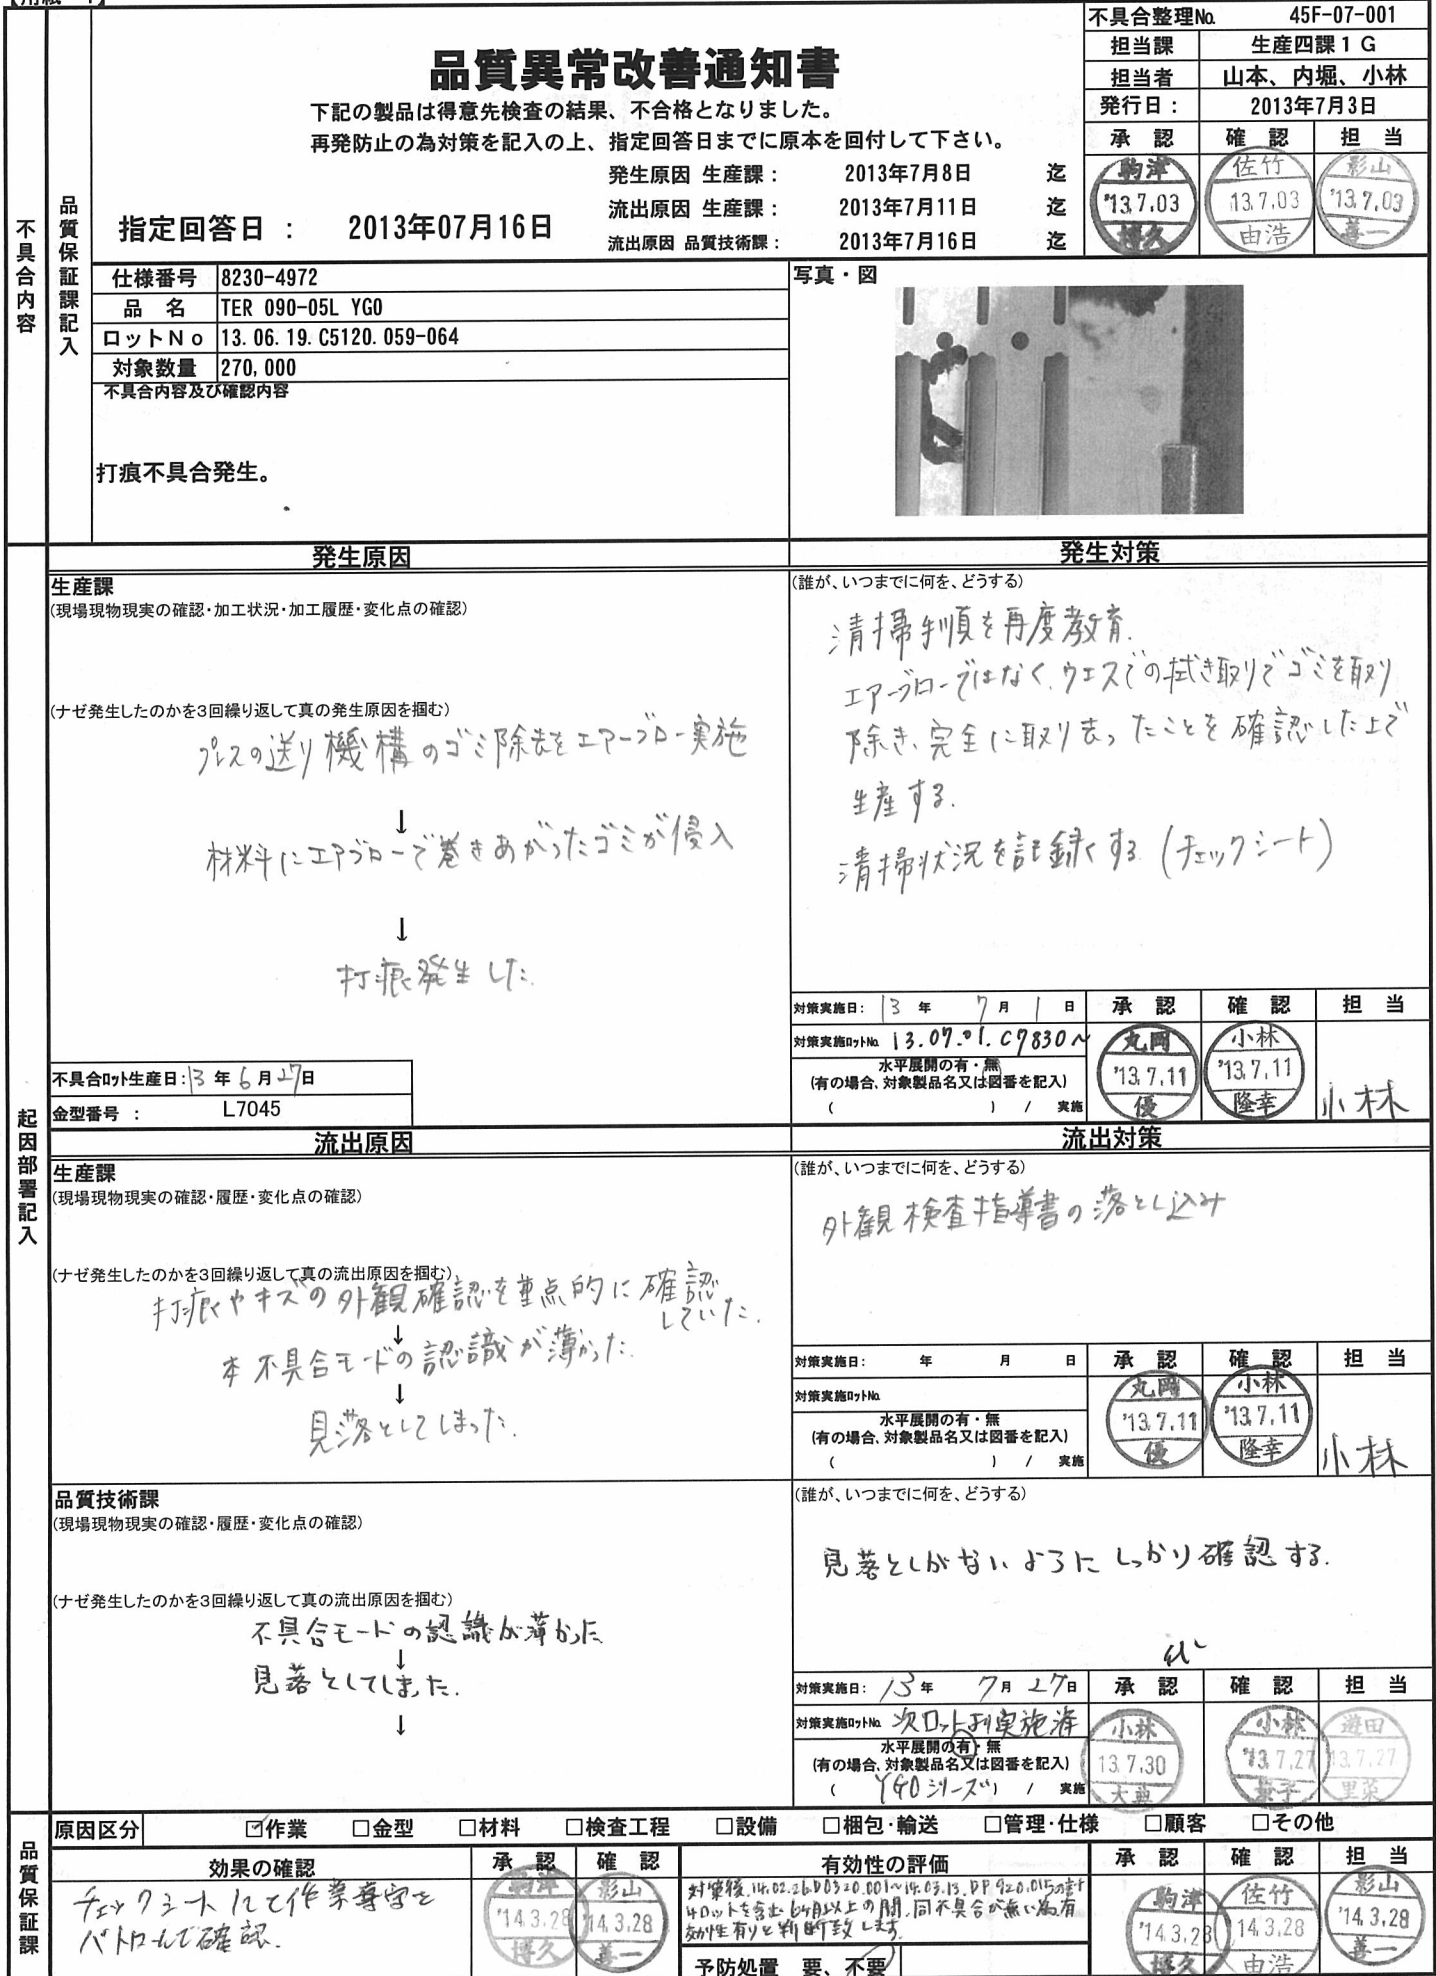 不具合整理No. 45F-07-001
担当課 生産四課1G
担当者 山本、内堀、小林
発行日： 2013年7月3日
承認 確認 担当
駒津 '13.7.03 博久
佐竹 13.7.03 由浩
影山 '13.7.03 善一
品質異常改善通知書
下記の製品は得意先検査の結果、不合格となりました。
再発防止の為対策を記入の上、指定回答日までに原本を回付して下さい。
発生原因 生産課： 2013年7月8日 迄
流出原因 生産課： 2013年7月11日 迄
流出原因 品質技術課： 2013年7月16日 迄
指定回答日 ： 2013年07月16日
不具合内容
品質保証課記入
仕様番号 8230-4972
品名 TER 090-05L YGO
ロットNo 13.06.19.C5120.059-064
対象数量 270,000
不具合内容及び確認内容
打痕不具合発生。
写真・図
起因部署記入
発生原因
生産課
(現場現物現実の確認・加工状況・加工履歴・変化点の確認)
(ナゼ発生したのかを3回繰り返して真の発生原因を掴む)
プレスの送り機構のゴミ除去をエアーブロー実施
↓
材料にエアブローで巻きあがったゴミが侵入
↓
打痕発生した
不具合ロット生産日：13年6月27日
金型番号 ： L7045
発生対策
(誰が、いつまでに何を、どうする)
清掃手順を再度教育.
エアーブローではなく、ウエスでの拭き取りでゴミを取り
除き、完全に取り去ったことを確認した上で
生産する.
清掃状況を記録する (チェックシート)
対策実施日： 13年 7月 1日
対策実施ロットNo. 13.07.01.C7830～
水平展開の有・無
(有の場合、対象製品名又は図番を記入)
( ) / 実施
承認 確認 担当
丸岡 '13.7.11 優
小林 '13.7.11 隆幸
小林
流出原因
生産課
(現場現物現実の確認・履歴・変化点の確認)
(ナゼ発生したのかを3回繰り返して真の流出原因を掴む)
打痕やキズの外観確認を重点的に確認
していた.
↓
本不具合モードの認識が薄かった.
↓
見落としてしまった.
流出対策
(誰が、いつまでに何を、どうする)
外観検査指導書の落とし込み
対策実施日： 年 月 日
対策実施ロットNo.
水平展開の有・無
(有の場合、対象製品名又は図番を記入)
( ) / 実施
承認 確認 担当
丸岡 '13.7.11 優
小林 '13.7.11 隆幸
小林
品質技術課
(現場現物現実の確認・履歴・変化点の確認)
(ナゼ発生したのかを3回繰り返して真の流出原因を掴む)
不具合モードの認識が薄かった
↓
見落としてしまった.
↓
(誰が、いつまでに何を、どうする)
見落としがないようにしっかり確認する.
対策実施日： 13年 7月 27日
対策実施ロットNo. 次ロットより実施済
水平展開の有・無
(有の場合、対象製品名又は図番を記入)
( YGOシリーズ ) / 実施
承認 確認 担当
小林 13.7.30
小林 '13.7.27
遊田 13.7.27 里菜
品質保証課
原因区分 ☑作業 □金型 □材料 □検査工程 □設備 □梱包・輸送 □管理・仕様 □顧客 □その他
効果の確認
チェックシートにて作業遵守を
パトロールで確認.
承認 確認
駒津 '14.3.28 博久
影山 '14.3.28 善一
有効性の評価
対策後、14.02.26.D0320.001～14.03.13.DP920.015の計
4ロットを含む6ヶ月以上の間、同不具合が無い為有
効性有りと判断致します.
予防処置 要、不要
承認 確認 担当
駒津 '14.3.28 博久
佐竹 '14.3.28 由浩
影山 '14.3.28 善一